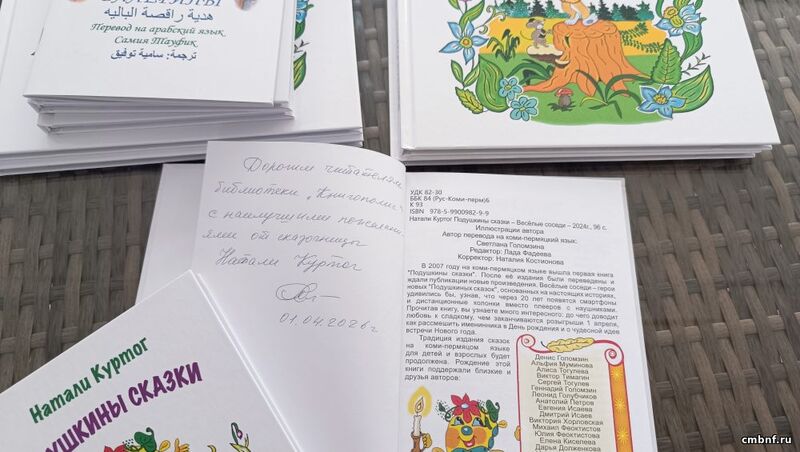 هدية راقصة الباليه
Перевод на арабский язык
Самия Тауфик
ترجمة: سامية توفيق
Дорогим читателям
библиотеки „Книгополис"
с наилучшими пожелани
ями от сказочницы
Натали Куртог
01.04.2026г
Натали Куртог
УШКИНЫ СКАЗКИ
УДК 82-30
ББК 84 (Рус-Коми-перм)6
К 93
ISBN 978-5-9900982-9-9
Натали Куртог Подушкины сказки – Весёлые соседи – 2024г., 96 с.
Иллюстрации автора
Автор перевода на коми-пермяцкий язык:
Светлана Голомзина
Редактор: Лада Фадеева
Корректор: Наталия Костионова
В 2007 году на коми-пермяцком языке вышла первая книга
"Подушкины сказки". После её издания были переведены и
ждали публикации новые произведения. Весёлые соседи – герои
новых "Подушкиных сказок", основанных на настоящих историях,
удивились бы, узнав, что через 20 лет появятся смартфоны
и дистанционные колонки вместо плееров с наушниками.
Прочитав книгу, вы узнаете много интересного: до чего доводит
любовь к сладкому, чем заканчиваются розыгрыши 1 апреля,
как рассмешить именинника в День рождения и о чудесной идее
встречи Нового года.
Традиция издания сказок
на коми-пермяцком языке
для детей и взрослых будет
продолжена. Рождение этой
книги поддержали близкие и
друзья авторов:
Денис Голомзин
Альфия Муминова
Алиса Тогулева
Виктор Тимагин
Сергей Тогулев
Геннадий Голомзин
Леонид Голубчиков
Анатолий Петров
Евгения Исаева
Дмитрий Исаев
Виктория Хорловская
Михаил Феоктистов
Юлия Феоктистова
Елена Киселева
Дарья Долженкова
cmbnf.ru